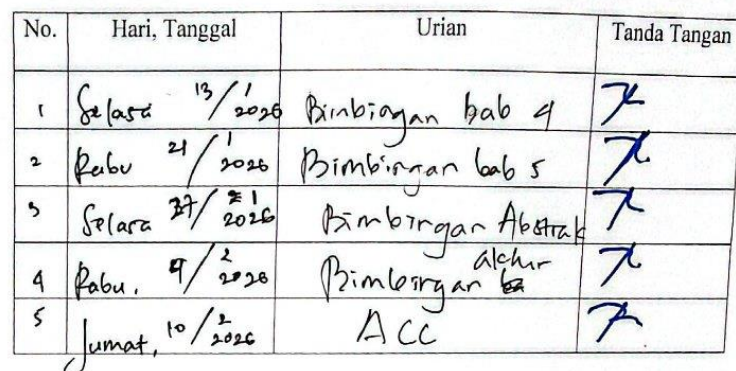 No. Hari, Tanggal Urian Tanda Tangan
1 Selasa 13/1 2026 Bimbingan bab 4
2 Rabu 21/1 2026 Bimbingan bab 5
3 Selasa 27/1 2026 Bimbingan Abstrak
4 Rabu, 4/2 2026 Bimbingan akhir
5 Jumat, 10/2 2026 ACC